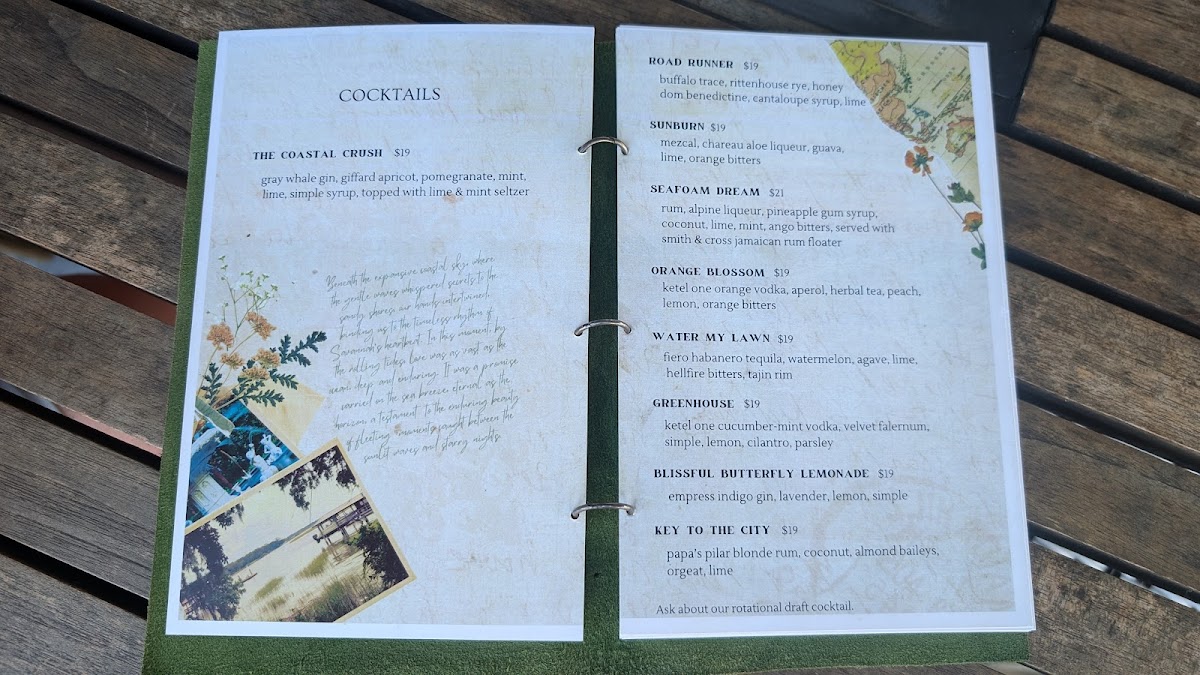 COCKTAILS
THE COASTAL CRUSH $19
gray whale gin, giffard apricot, pomegranate, mint,
lime, simple syrup, topped with lime & mint seltzer
Beneath the expansive coastal sky, where
the gentle waves whispered secrets to the
sandy shores, our hands intertwined,
binding us to the timeless rhythm of
Savannah's heartbeat. In this moment, by
the rolling tides, love was as vast as the
ocean, deep and enduring. It was a promise
carried in the sea breeze, eternal as the
horizon, a testament to the enduring beauty
of fleeting moments caught between the
sunlit waves and starry nights.
ROAD RUNNER $19
buffalo trace, rittenhouse rye, honey
dom benedictine, cantaloupe syrup, lime
SUNBURN $19
mezcal, chareau aloe liqueur, guava,
lime, orange bitters
SEAFOAM DREAM $21
rum, alpine liqueur, pineapple gum syrup,
coconut, lime, mint, ango bitters, served with
smith & cross jamaican rum floater
ORANGE BLOSSOM $19
ketel one orange vodka, aperol, herbal tea, peach,
lemon, orange bitters
WATER MY LAWN $19
fiero habanero tequila, watermelon, agave, lime,
hellfire bitters, tajin rim
GREENHOUSE $19
ketel one cucumber-mint vodka, velvet falernum,
simple, lemon, cilantro, parsley
BLISSFUL BUTTERFLY LEMONADE $19
empress indigo gin, lavender, lemon, simple
KEY TO THE CITY $19
papa's pilar blonde rum, coconut, almond baileys,
orgeat, lime
Ask about our rotational draft cocktail.